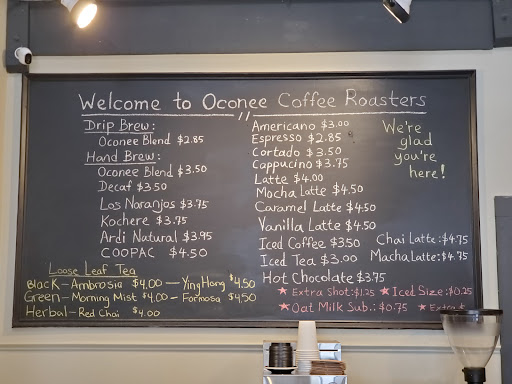 Welcome to Oconee Coffee Roasters
Drip Brew:
Oconee Blend $2.85
Hand Brew:
Oconee Blend $3.50
Decaf $3.50
Los Naranjos $3.75
Kochere $3.75
Ardi Natural $3.95
COOPAC $4.50
Loose Leaf Tea
Black - Ambrosia $4.00 - Ying Hong $4.50
Green - Morning Mist $4.00 - Formosa $4.50
Herbal - Red Chai $4.00
Americano $3.00
Espresso $2.85
Cortado $3.50
Cappucino $3.75
Latte $4.00
Mocha Latte $4.50
Caramel Latte $4.50
Vanilla Latte $4.50
Iced Coffee $3.50
Iced Tea $3.00
Hot Chocolate $3.75
We're
glad
you're
here!
Chai Latte: $4.75
Macha Latte: $4.75
★ Extra Shot: $1.25 ★ Iced Size: $0.25
★ Oat Milk Sub.: $0.75 ★ Extra